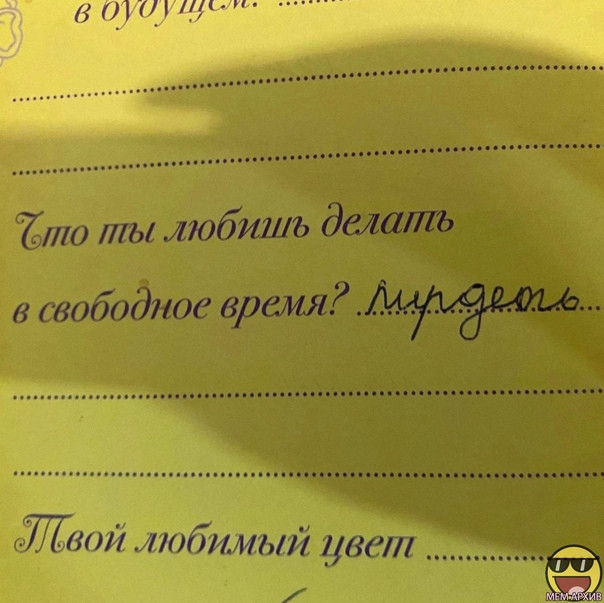 в будущем? ..........
Что ты любишь делать
в свободное время? пирдеть
Твой любимый цвет ..........
МЕМ-АРХИВ